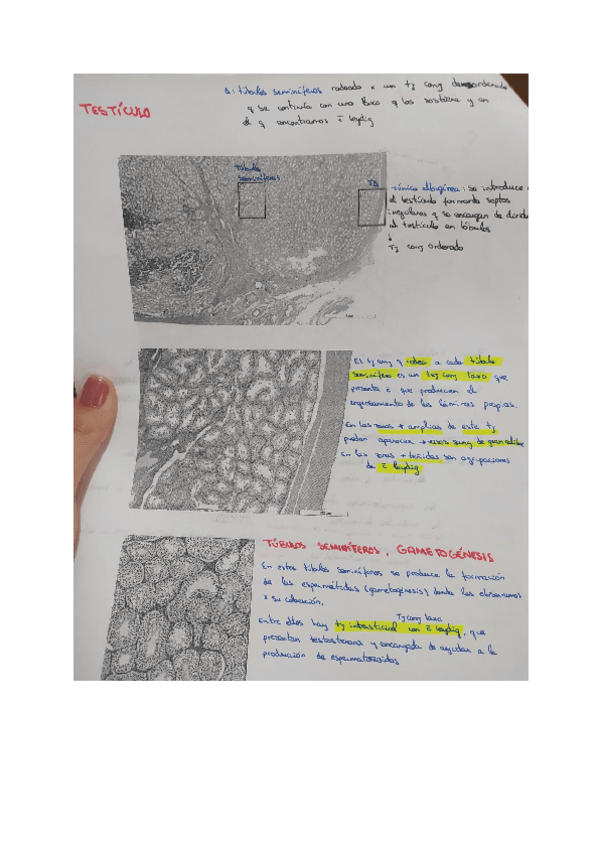 TESTÍCULO
Δ: túbulos seminíferos rodeado x un tj conj desordenado
q se continúa con una fina q los sostiene y en
el q encontramos c̄ leydig
Túbulos
seminíferos
TA
túnica albugínea: se introduce
el testículo formando septos
irregulares q se encargan de dividir
al testículo en lóbulos
↓
Tj conj ordenado
El tj conj q rodea a cada túbulo
seminífero es un tej conj laxo que
presenta c̄ que producen el
engrosamiento de las láminas propias.
En las zonas + amplias de este tj
pueden aparecer + vasos sang de gran calibre
En las zonas + teñidas son agrupaciones
de c̄ leydig
TÚBULOS SEMINÍFEROS, GAMETOGÉNESIS
En estos túbulos seminíferos se produce la formación
de las espermátidas (gametogénesis) donde las observamos
x su coloración.
Tj conj laxo
Entre ellos hay tj intersticial con c̄ leydig, que
presentan testosterona y encargada de ayudar a la
producción de espermatozoides